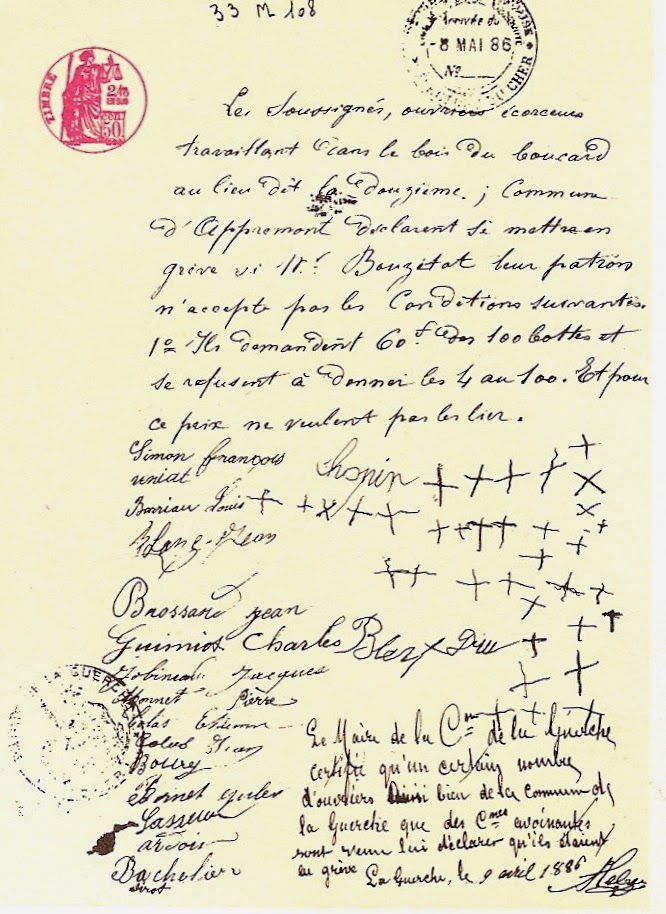 33 M 108
Arrivée du
-8 MAI 86
No
CHER
TIMBRE
50
Les Soussignés, ouvriers écorceurs
travaillant dans le bois du boucard
au lieu dit la douzième. ; Commune
d'Appremont déclarent se mettre en
grève si Mr. Bouzitat leur patron
n'accepte pas les Conditions suivantes.
1o Ils demandent 60f des 100 bottes et
se refusent à donner les 4 au 100. Et pour
ce prix ne veulent pas les lier.
Simon François Chopin
veniat
Barriau Louis
Blanc Jean
Brossard Jean
Guimiot Charles
Jobineau Jacques
Monnet Pierre
Etienne
Jean
Bourg
Bornet Jules
Lasseur
Bachelier
LA GUERCHE
Le Maire de la Cne de la Guerche
certifie qu'un certain nombre
d'ouvriers aussi bien de la commune de
la Guerche que des Cnes avoinantes
sont venu lui déclarer qu'ils étaient
en grève
La Guerche, le 9 avril 1886